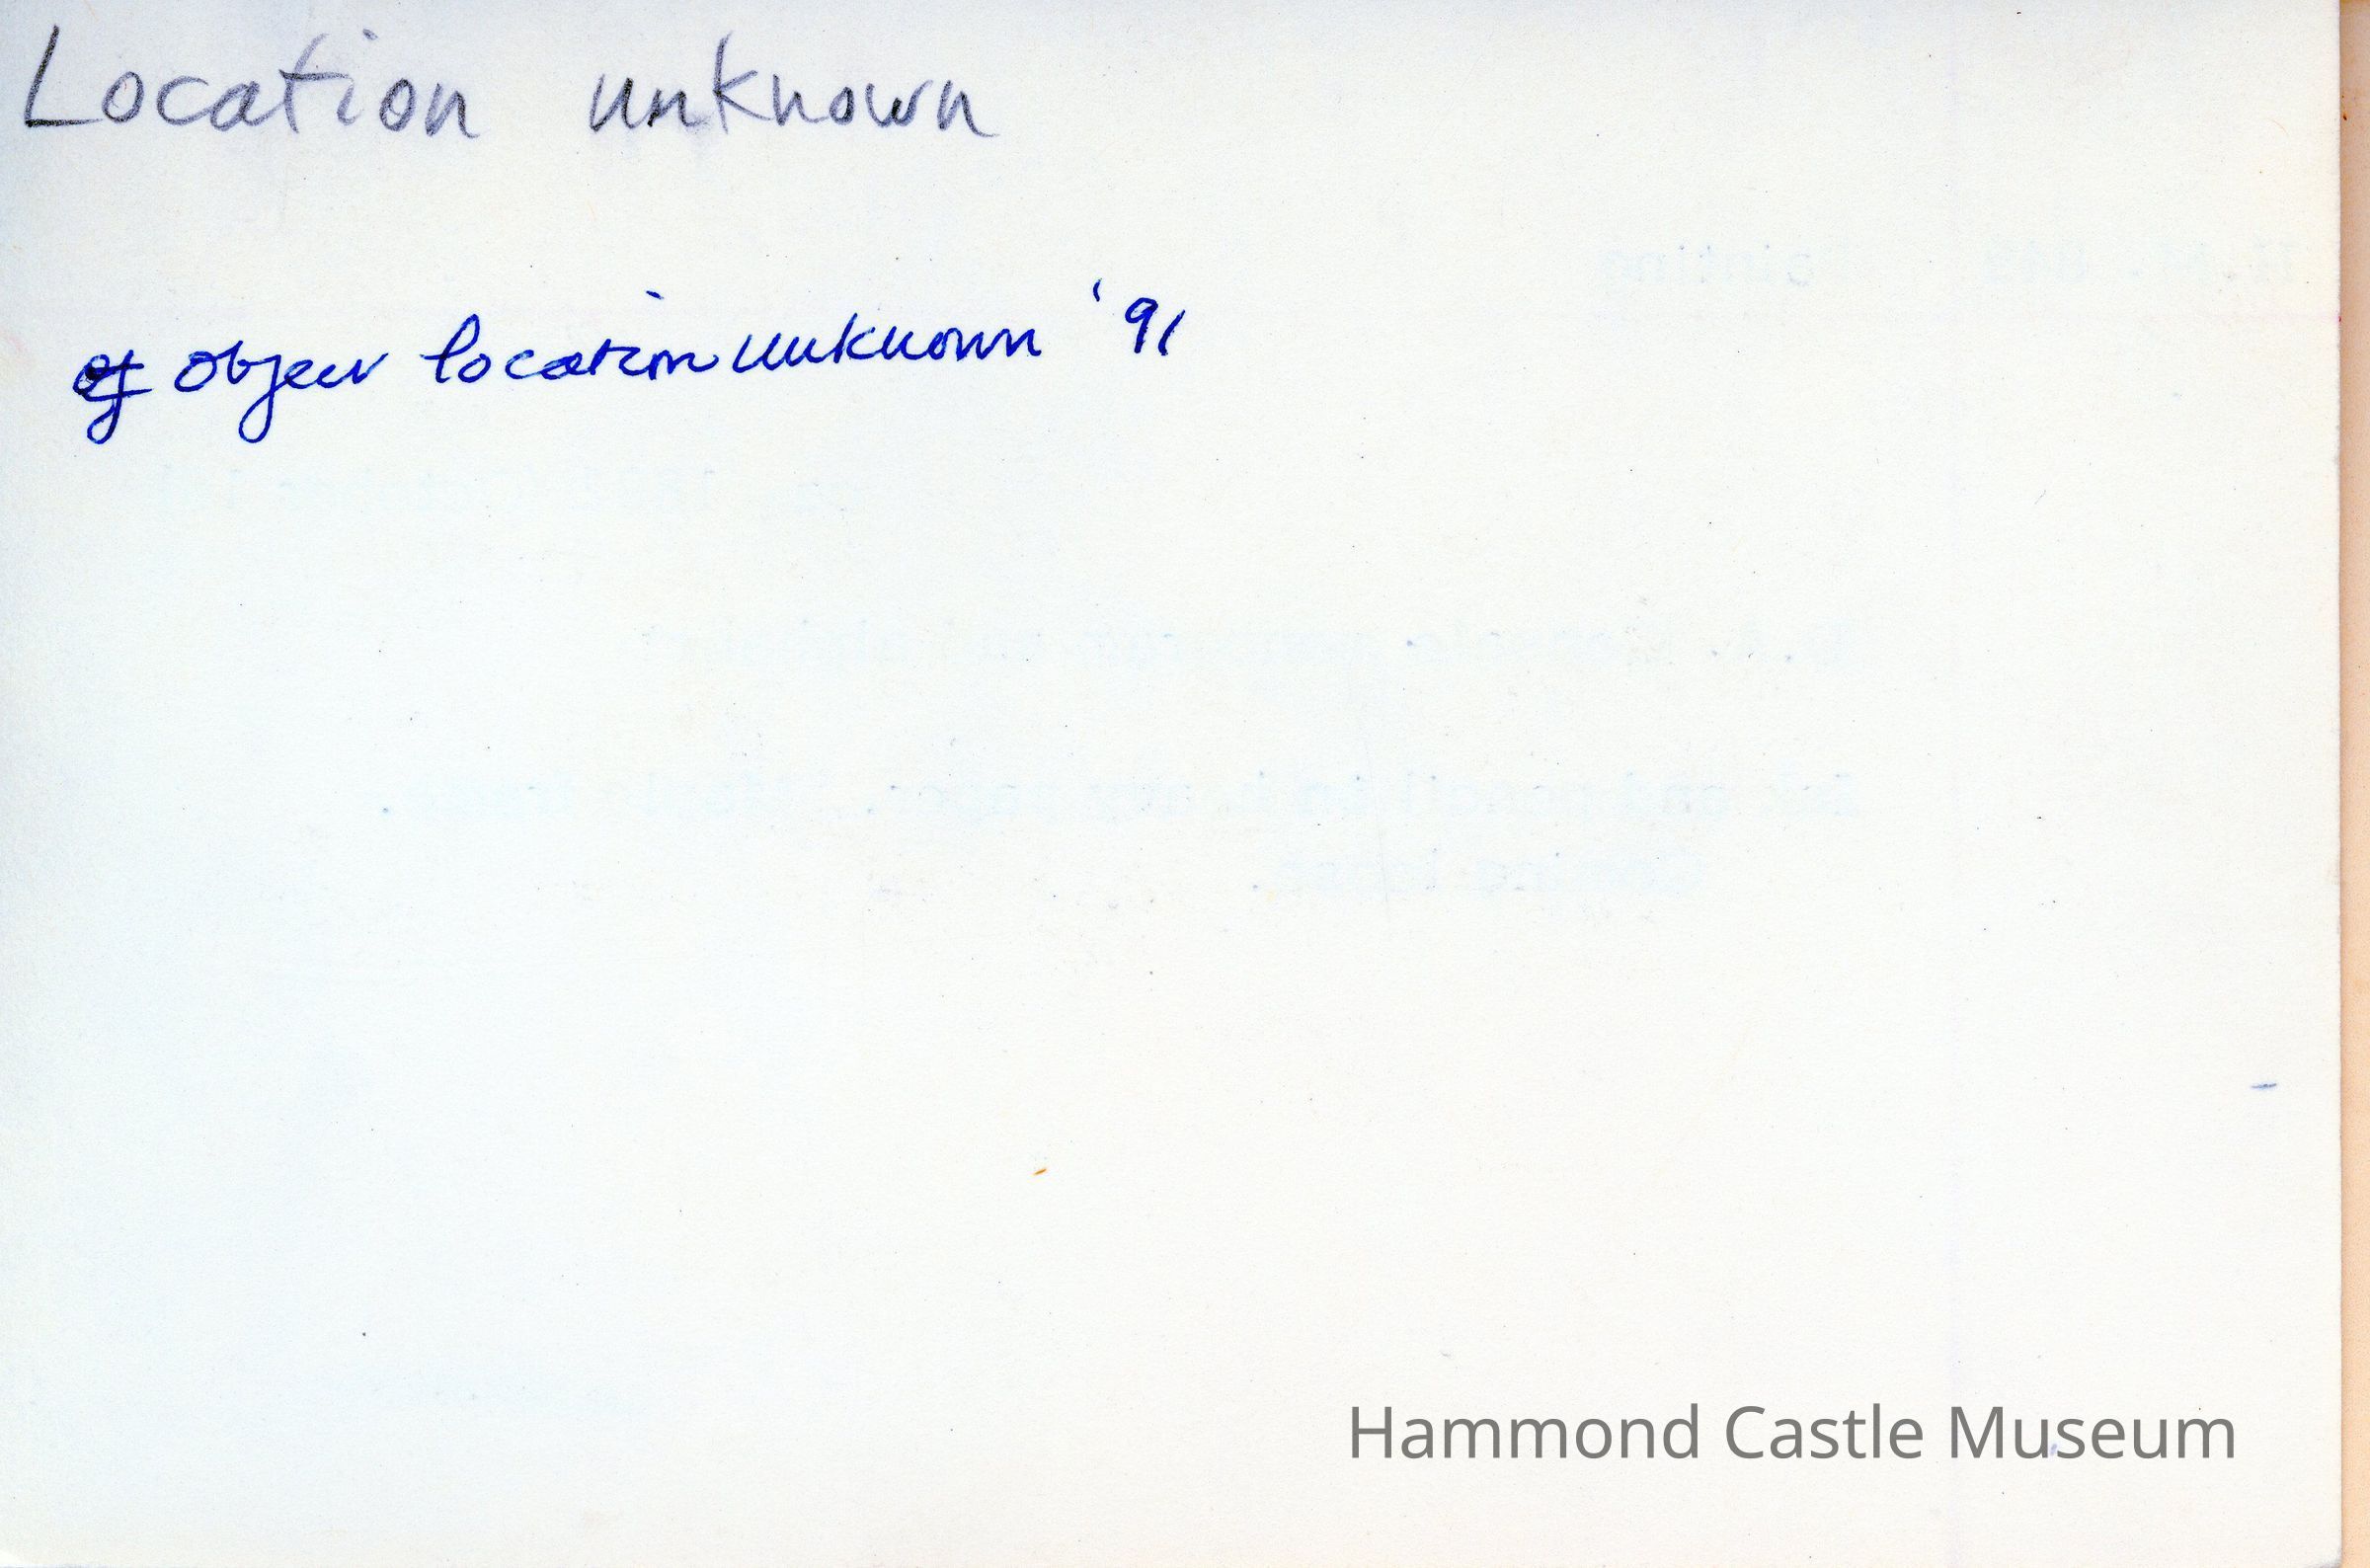 Location unknown
of object location unknown '91
Hammond Castle Museum